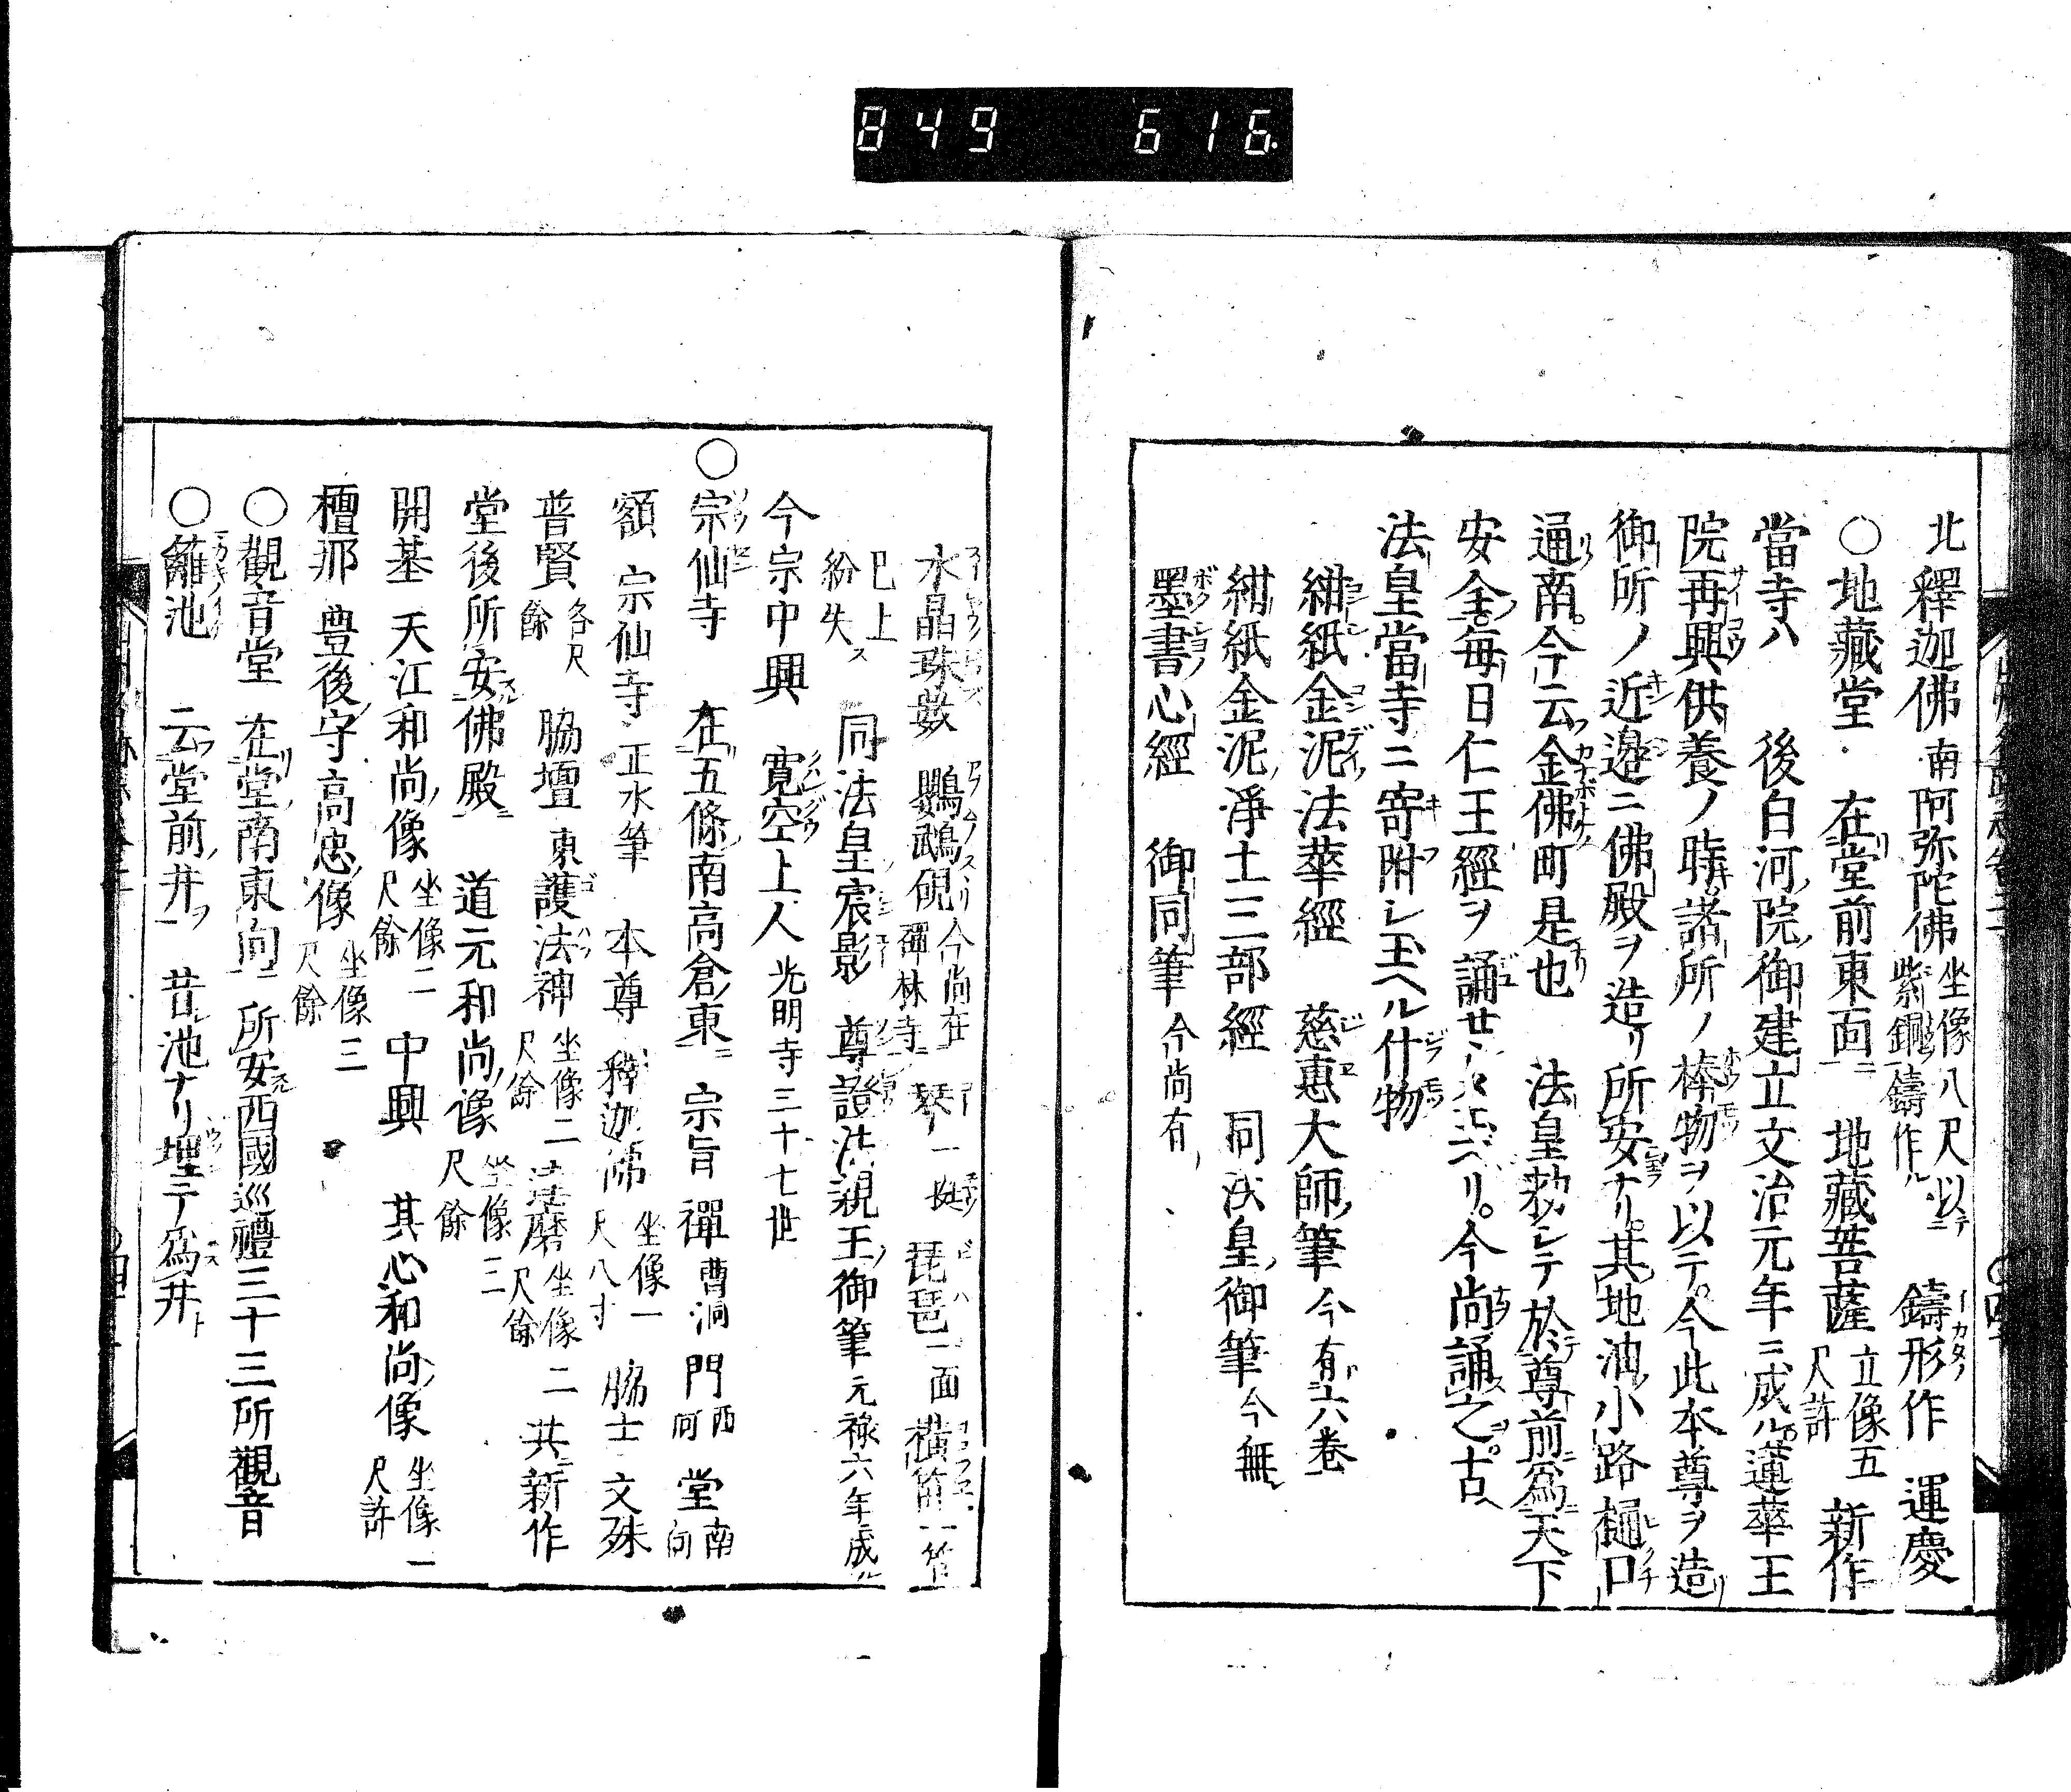 849 616
北釋迦佛 南阿弥陀佛 坐像八尺以テ紫銅鑄作ル 鑄形作 運慶
○地藏堂 在堂前東面ニ 地藏菩薩 立像五尺許 新作
當寺ハ 後白河院御建立文治元年ニ成ル蓮華王
院再興供養ノ時諸所ノ棒物ヲ以テ今此本尊ヲ造リ
御所ノ近邊ニ佛殿ヲ造リ所安ナリ其地油小路樋口
通南今云金佛町是也 法皇勅シテ於尊前爲天下
安全毎日仁王經ヲ誦せ 今尚誦之古ヘ
法皇當寺ニ寄附シ玉ヘル什物
紺紙金泥法華經 慈惠大師筆 今有六卷
紺紙金泥淨土三部經 同法皇御筆 今無
墨書心經 御同筆 今尚有
水晶珠數 鸚鵡硯 今尚在禪林寺 琴一挺 琵琶一面 横笛一管
已上紛失ス 同法皇宸影 尊證法親王御筆 元禄六年成ル
今宗中興 寛空上人 光明寺三十七世
○宗仙寺 在五條南高倉東ニ 宗旨禪 曹洞 門 西向 堂 南向
額 宗仙寺 正水筆 本尊 釋迦佛 坐像一尺八寸 脇士 文殊
普賢 各尺餘 脇壇 東護法神 坐像二尺餘 達磨 坐像二尺餘 二共新作
堂後所安佛殿ニ 道元和尚像 坐像三尺餘
開基 天江和尚像 坐像二尺餘 中興 其心和尚像 坐像一尺許
檀那 豊後守高忠像 坐像三尺餘
○觀音堂 在堂南東向 所安西國巡禮三十三所觀音
○籬池 云堂前井ヲ 昔池ナリ埋テ爲井ト